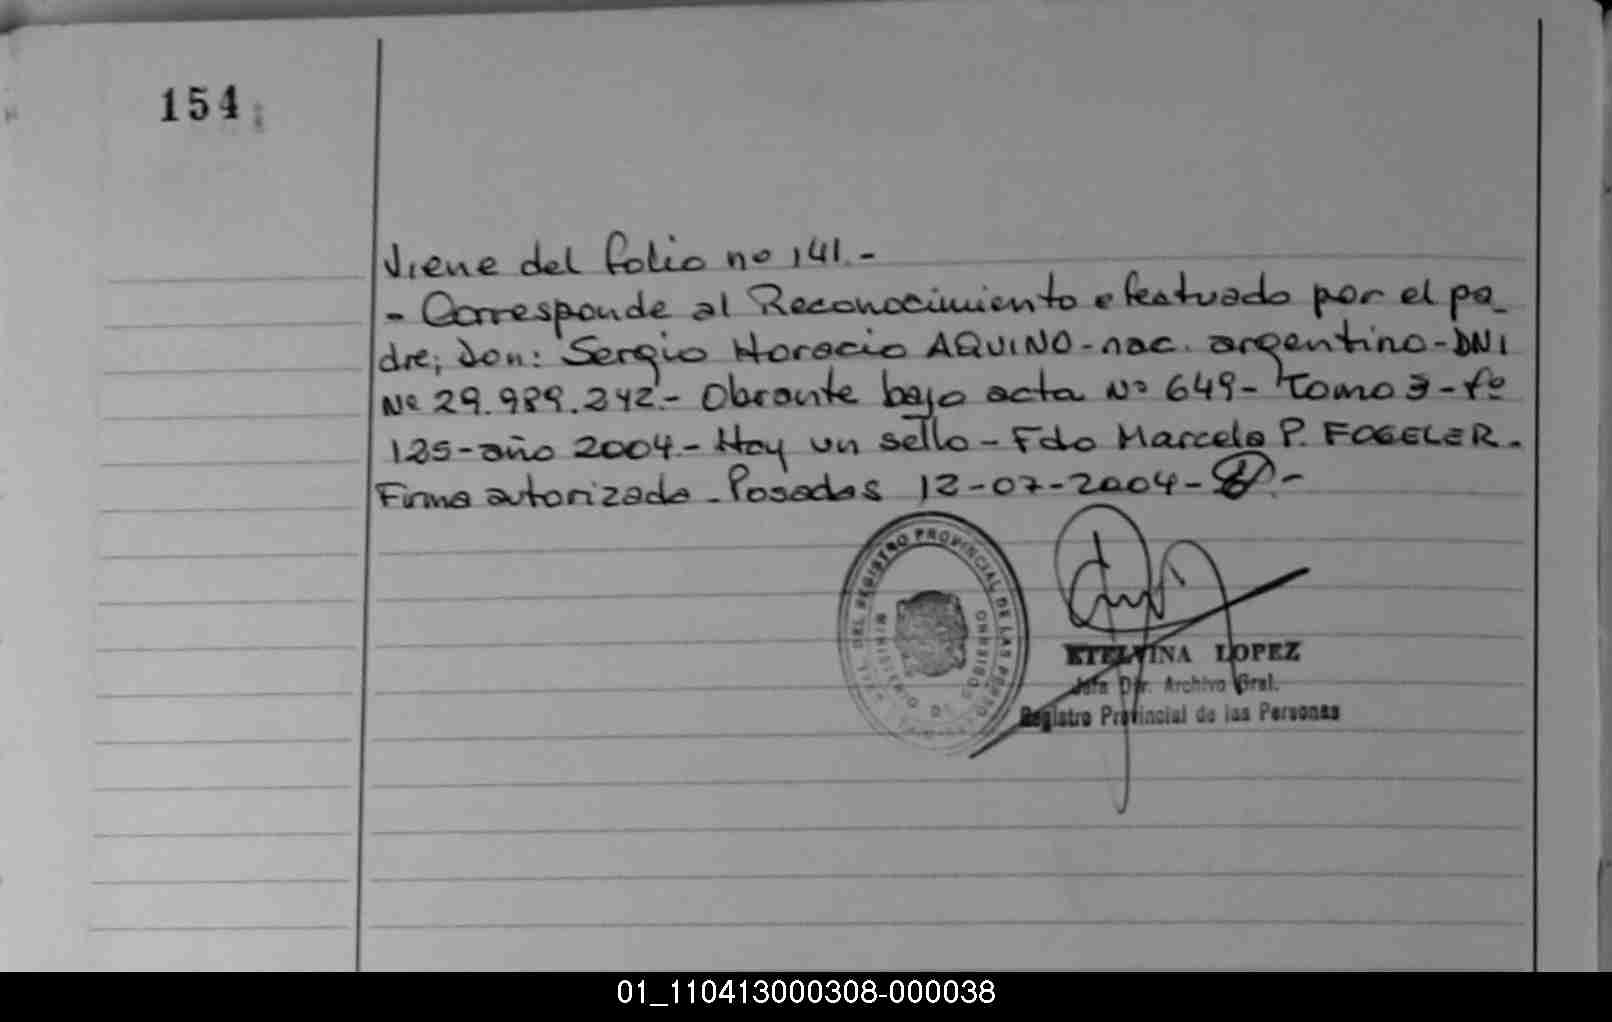 154
Viene del folio no 141.-
- Corresponde al Reconocimiento efectuado por el pa_
dre, don: Sergio Horacio AQUINO-nac. argentino-DNI
Nº 29.989.242.- Obrante bajo acta Nº 649- Tomo 3-fº
125-año 2004.- Hay un sello- Fdo Marcelo P. FOGELER.
Firma autorizada_ Posadas 12-07-2004-
REGISTRO PROVINCIAL DE LAS
MINISTERIO DE GOBIERNO
ETELVINA LOPEZ
Jefa Dir. Archivo Gral.
Registro Provincial de las Personas
01_110413000308-000038